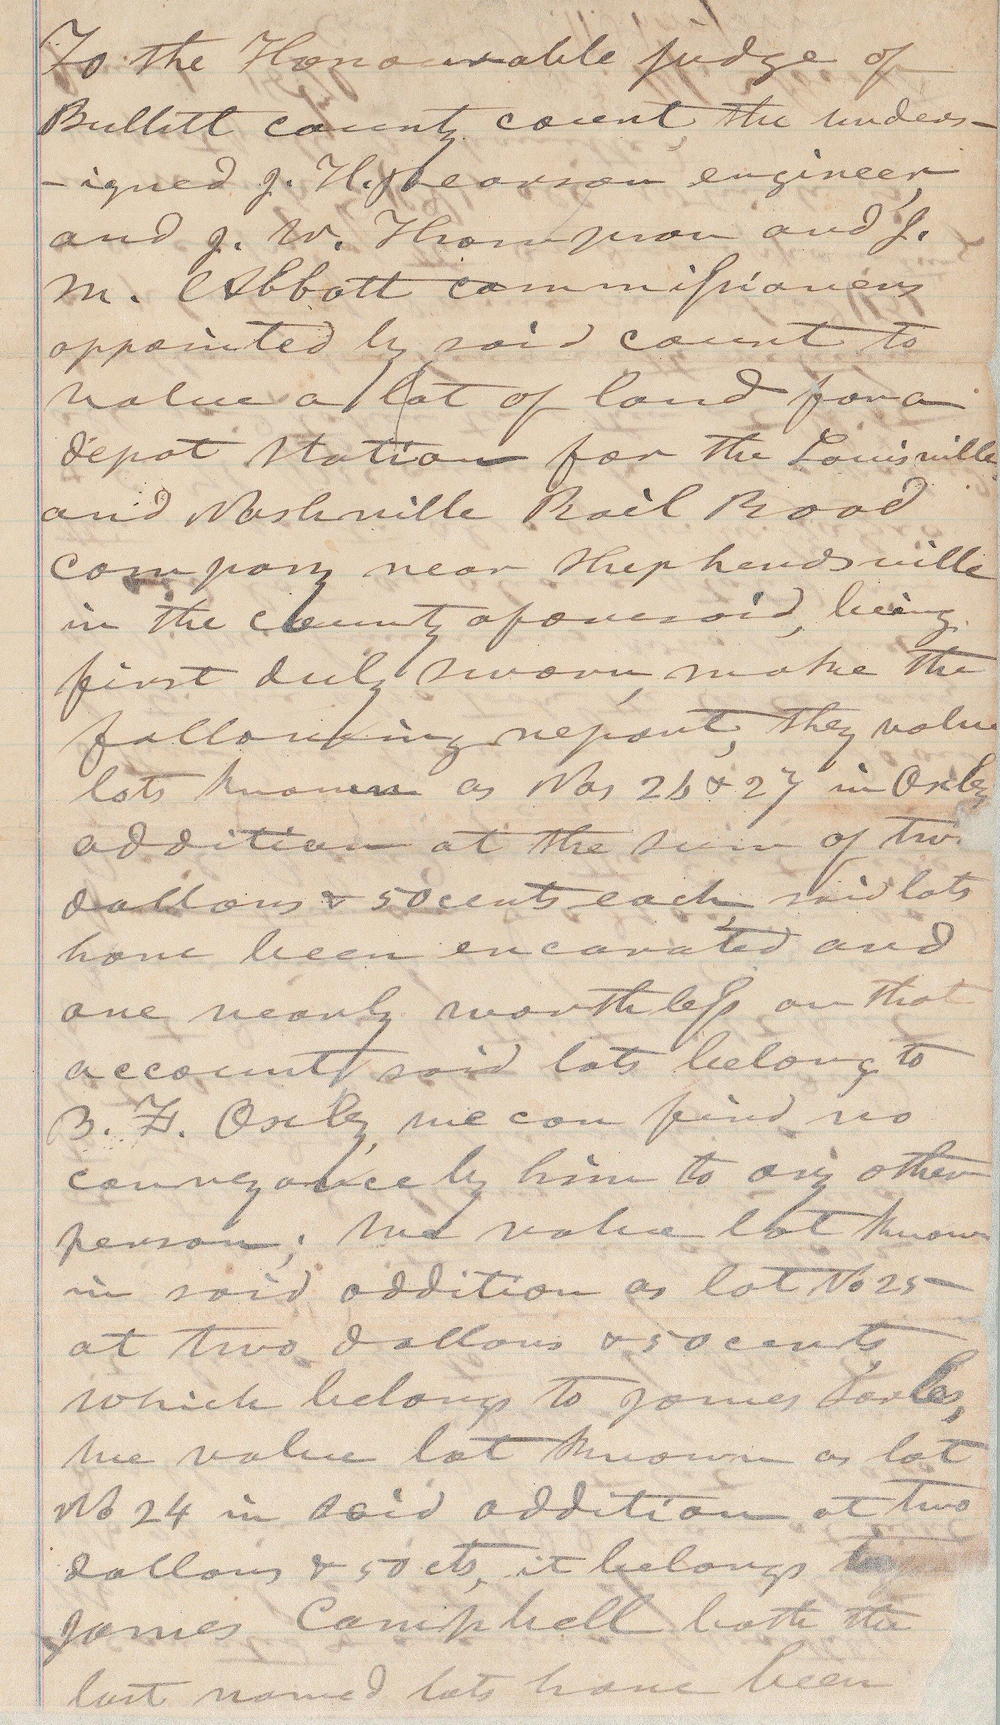 To the Honourable judge of
Bullitt county court, the unders-
-igned J. H. Pearson engineer,
and J. W. Thompson and J.
M. Abbott commissioners
appointed by said court to
value a lot of land for a
depot Station for the Louisville
and Nashville Rail Road
company near Shepherdsville
in the county aforesaid, being
first duly sworn, make the
following report, they value
lots known as Nos 26 & 27 in Oxley
addition at the sum of two
dollars & 50 cents each, said lots
have been excavated and
are nearly worthless on that
account said lots belong to
B. F. Oxley, we can find no
conveyance by him to any other
person; We value lot known
in said addition as lot No 25
at two dollars & 50 cents,
which belongs to James
we value lot known as lot
No 24 in said addition at two
dollars & 50 cts, it belongs to
James Campbell both the
last named lots have been